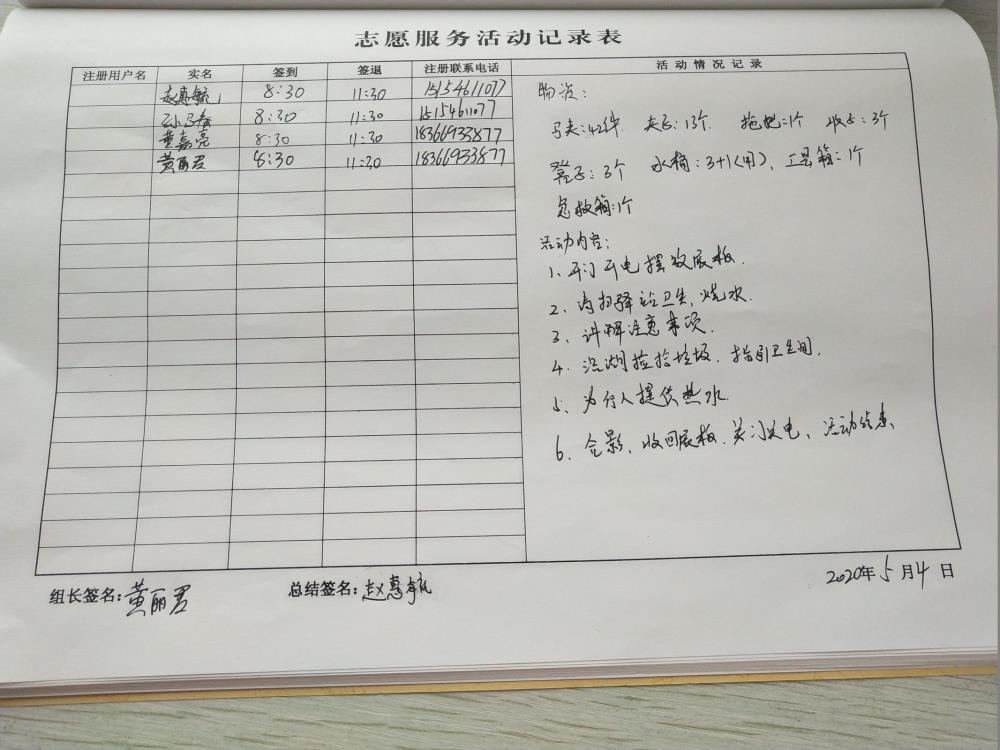 志愿服务活动记录表
注册用户名 实名 签到 签退 注册联系电话 活动情况记录
赵惠毓 8:30 11:30 15154611077
8:30 11:30 15154611077
黄嘉亮 8:30 11:30 18366933877
黄丽君 8:30 11:30 18366933877
物资:
马夹:42件 夹子:13个 拖把:1个 3个
凳子:3个 水桶:3+1(用)、工具箱:1个
急救箱:1个
活动内容:
1、开门开电摆放展板.
2、清扫驿站卫生,烧水.
3、讲解注意事项.
4、沿湖捡拾垃圾.指引卫生间.
5、为行人提供热水.
6、合影、收回展板.关门关电、活动结束、
组长签名:黄丽君 总结签名:赵惠毓 2020年5月4日